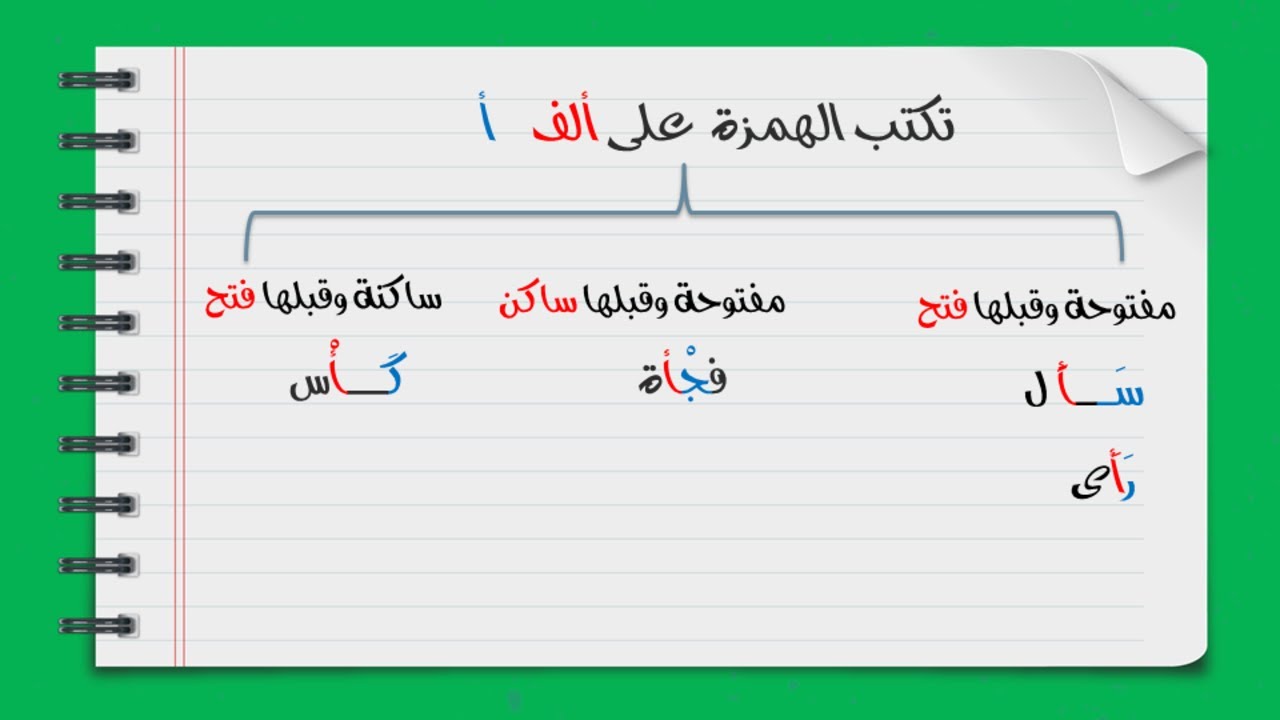 تكتب الهمزة على ألف أ
مفتوحة وقبلها فتح
سَـــأَ ل
رَأَى
مفتوحة وقبلها ساكن
فجْأة
ساكنة وقبلها فتح
كَـــأْس